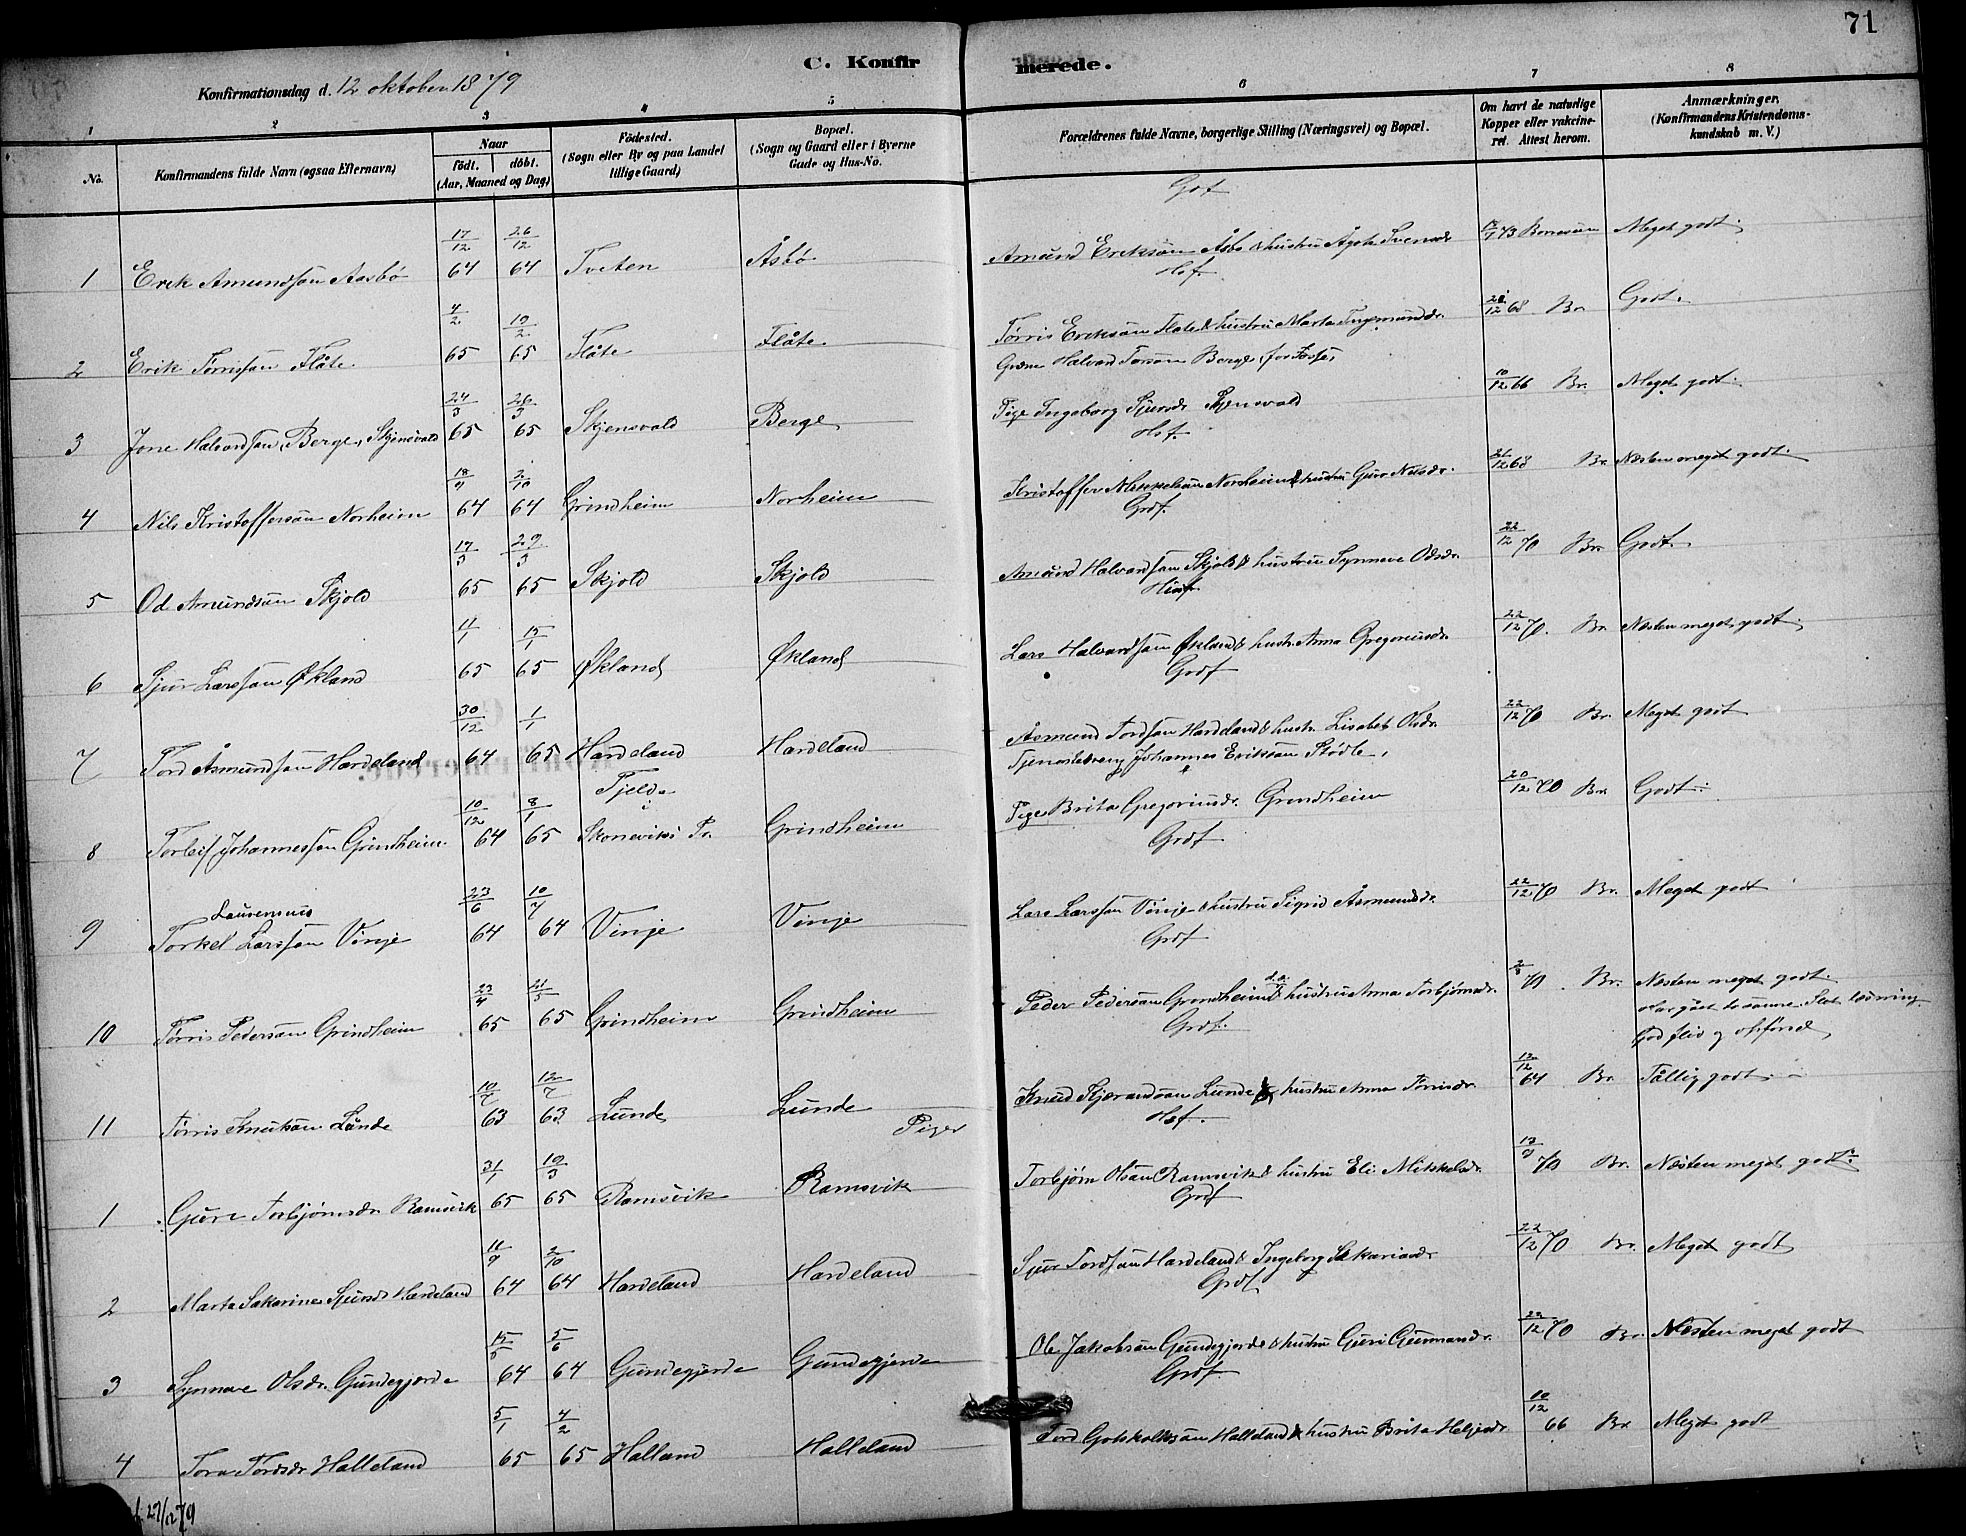 71
C. Konfirmerede.
Konfirmationsdag d. 12 oktober 1879
1 2 3 4 5 6 7 8
No.
Konfirmandens fulde Navn (ogsaa Efternavn)
Naar födt. döbt. (Aar, Maaned og Dag)
Födested. (Sogn eller By og paa Landet tillige Gaard)
Bopæl. (Sogn og Gaard eller i Byerne Gade og Hus-No.
Forældrenes fulde Navne, borgerlige Stilling (Næringsvei) og Bopæl.
Om havt de naturlige Kopper eller vakcineret. Attest herom.
Anmærkninger. (Konfirmandens Kristendomskundskab m. V.)
1 Erik Amundsøn Aasbø 17/12 64 26/12 64 Tveten Åsbø Amund Eriksøn Åsbø & hustru Ågota Svensdr. 73 Meget godt.
Hsf.
2 Erik Tørrissøn Flåte 4/2 65 19/2 65 Flåte Flåte Tørris Eriksøn Flåte & hustru Marta Ingemundsdr. 68 Br. Godt.
3 Jone Halvardsøn Berge, Skjensvold 24/3 65 26/3 65 Skjensvold Berge Halvard Torsøn Berge,
Pige Ingeborg Sjursdr. Skjensvold 10/12 66 Br. Meget godt.
Hsf.
4 Nils Kristoffersøn Norheim 18/9 64 2/10 64 Grindheim Norheim Kristoffer Mikkelsøn Norheim & hustru Guro Nilsdr. 68 Br. Næsten meget godt.
Grdf.
5 Od Amundsøn Skjold 17/3 65 29/3 65 Skjold Skjold Amund Halvardsøn Skjold & hustru Synneve Odsdr. 22/12 70 Br. Godt.
6 Sjur Larssøn Økland 11/1 65 15/1 65 Økland Økland Lars Halvardsøn Økland & hustr. Anna Gregoriusdr. 22/12 70. Br. Næsten meget godt.
Grdf
7 Tord Åsmundsøn Hardeland 30/12 64 1/1 65 Hardeland Hardeland Åsmund Tordsøn Hardeland & hustr. Lisabet Olsdr. 22/12 70 Br. Meget godt
8 Torleif Johannessøn Grindheim 10/12 64 8/1 65 Tjelde i Skoneviks Pr. Grindheim Tjenestedreng Johannes Eriksøn Stødle,
Pige Brita Gregoriusdr. Grindheim 20/12 70 Br. Godt
Grdf
9 Torkel Laurensius Larssøn Vinje 23/6 64 10/7 64 Vinje Vinje Lars Larssøn Vinje & hustru Sigrid Åsmundsdr. 22/12 70 Br. Meget godt
Grdf
10 Tørris Pedersøn Grindheim 23/4 65 21/5 65 Grindheim Grindheim Peder Pedersøn Grindheim & hustru Anna Torbjørnsdr. 2/8 70 Br. Næsten meget godt.
god flid og opførsel
Grdf.
11 Tørris Knutsøn Lunde 10/7 63 12/7 63 Lunde Lunde Knud Kjærandsøn Lunde & hustru Anna Tørrisdr. 64 Br. Tållig godt
Hsf.
Piger
1 Guro Torbjørnsdr. Ramsvik 31/1 65 19/3 65 Ramsvik Ramsvik Torbjørn Olsøn Ramsvik & hustru Eli Mikkelsdr. 70 Br. Næsten meget godt.
Grdf
2 Marta Sakarine Sjursdr. Hardeland 11/9 64 2/10 64 Hardeland Hardeland Sjur Tordsøn Hardeland & Ingeborg Sakariasdr. 22/12 70 Br. Meget godt
Grdf
3 Synneve Olsdr. Gundegjerde 15/5 64 5/6 64 Gundegjerde Gundegjerde Ole Jakobsøn Gundegjerde & hustru Guri Gunnarsdr. 22/12 70 Br. Næsten meget godt
Grdf.
4 Tora Tordsdr. Halleland 5/1 65 4/2 65 Halland Halleland Tord Gotskalksøn Halleland & hustru Brita Helgesdr. 10/12 66 Br. Meget godt